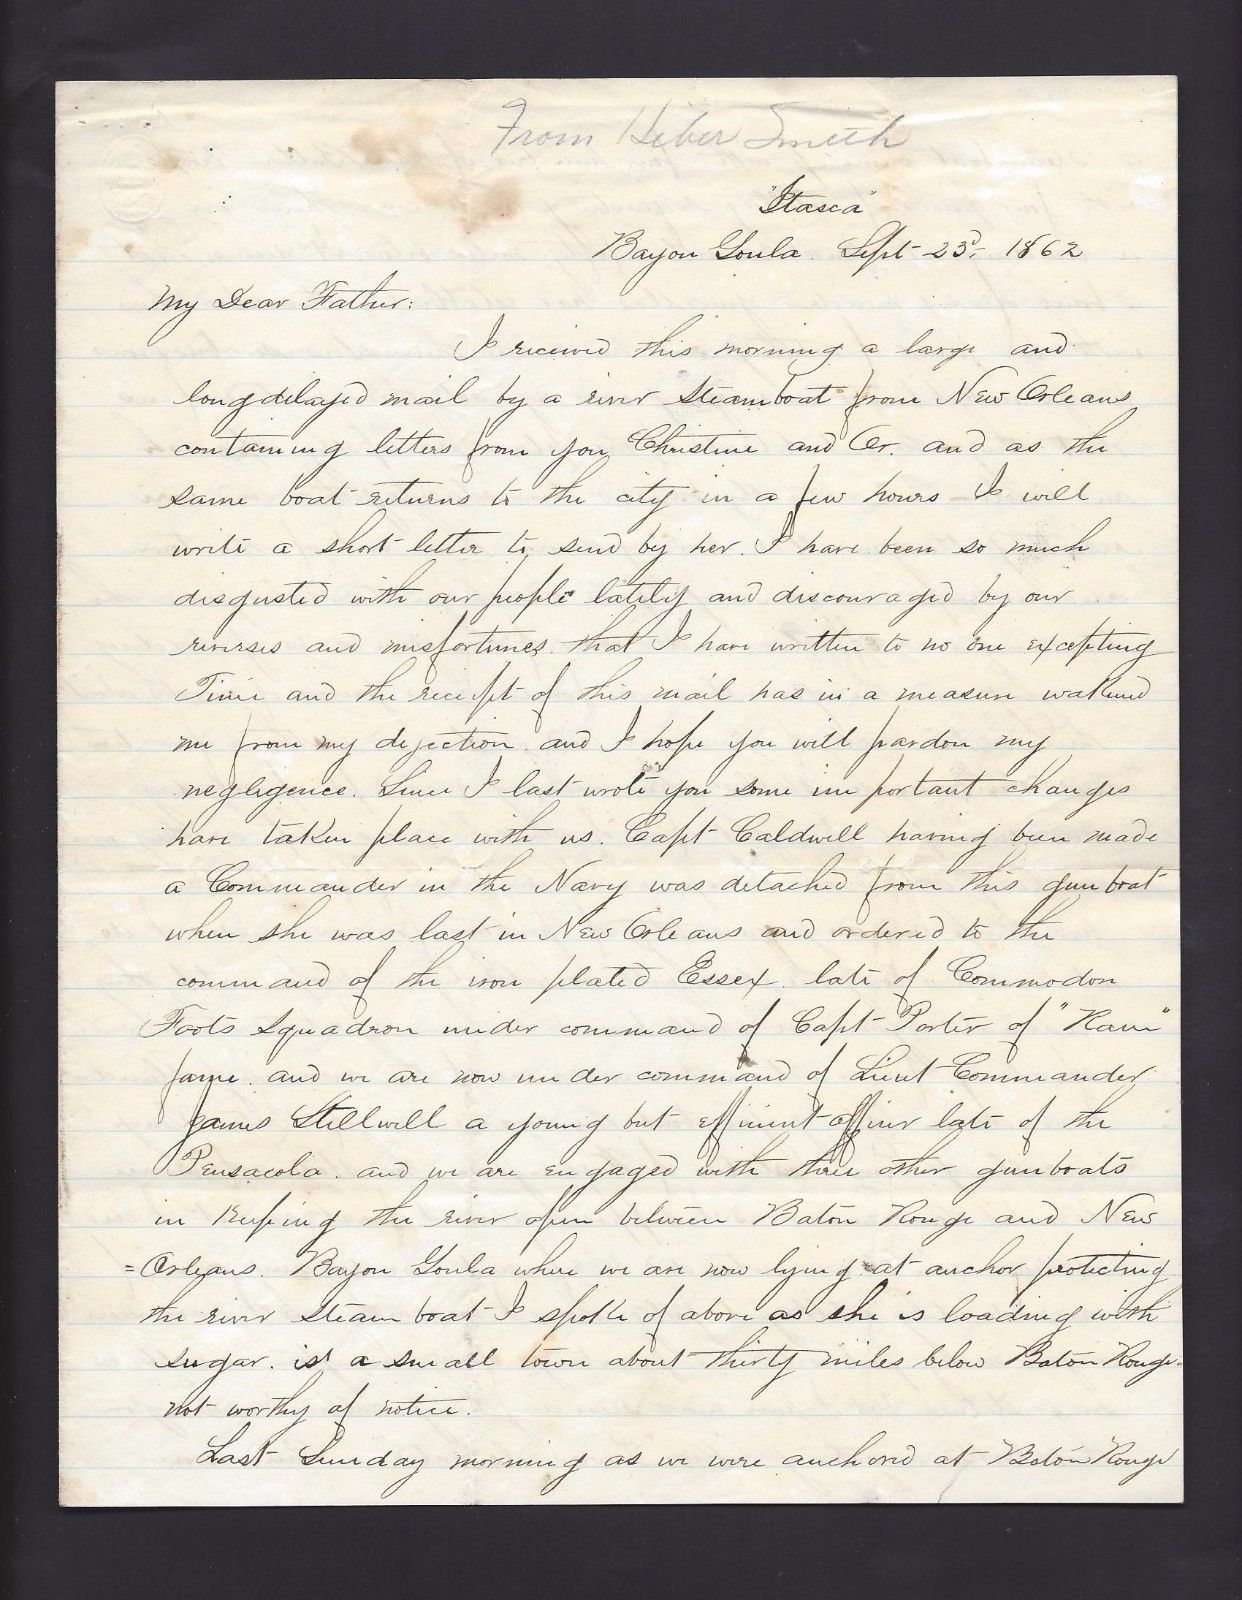 From Heber Smith
"Itasca"
Bayou Goula. Sept 23d. 1862
My Dear Father:
I received this morning a large and
long delayed mail by a river steamboat from New Orleans
containing letters from you Christine and Or. and as the
same boat returns to the city in a few hours I will
write a short letter to send by her. I have been so much
disgusted with our people lately and discouraged by our
reverses and misfortunes that I have written to no one excepting
and the receipt of this mail has in a measure wakened
me from my dejection and I hope you will pardon my
negligence. Since I last wrote you some important changes
have taken place with us. Capt Caldwell having been made
a Commander in the Navy was detached from this gunboat
when she was last in New Orleans and ordered to the
command of the iron plated Essex late of Commodore
Foots Squadron under command of Capt Porter of "Ram"
fame. and we are now under command of Lieut Commander
James Stillwell a young but efficient officer late of the
Pensacola. and we are engaged with three other gunboats
in keeping the river open between Baton Rouge and New
=Orleans. Bayou Goula where we are now lying at anchor protecting
the river steamboat I spoke of above as she is loading with
sugar. is a small town about thirty miles below Baton Rouge.
not worthy of notice.
Last Sunday morning as we were anchored at Baton Rouge